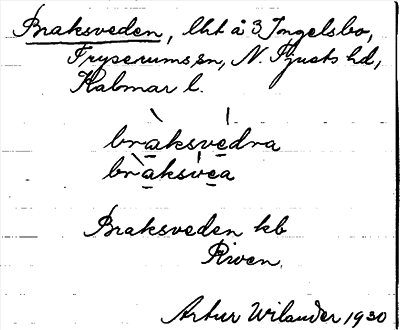 Braksveden, lht å 3 Ingelsbo,
Fryserums sn, N. Tjusts hd,
Kalmar l.
bràksvedra
bràksvea
Braksveden kb
Riven.
Artur Wilander 1930